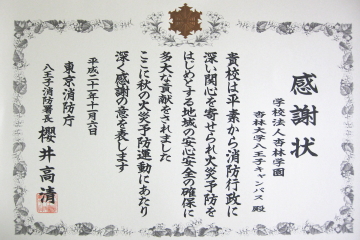 感謝状
学校法人杏林学園
杏林大学八王子キャンパス殿
貴校は平素から消防行政に
深い関心を寄せられ火災予防を
はじめとする地域の安心安全の確保に
多大な貢献をされました
ここに秋の火災予防運動にあたり
深く感謝の意を表します
平成二十五年十一月六日
東京消防庁
八王子消防署長 櫻井高清